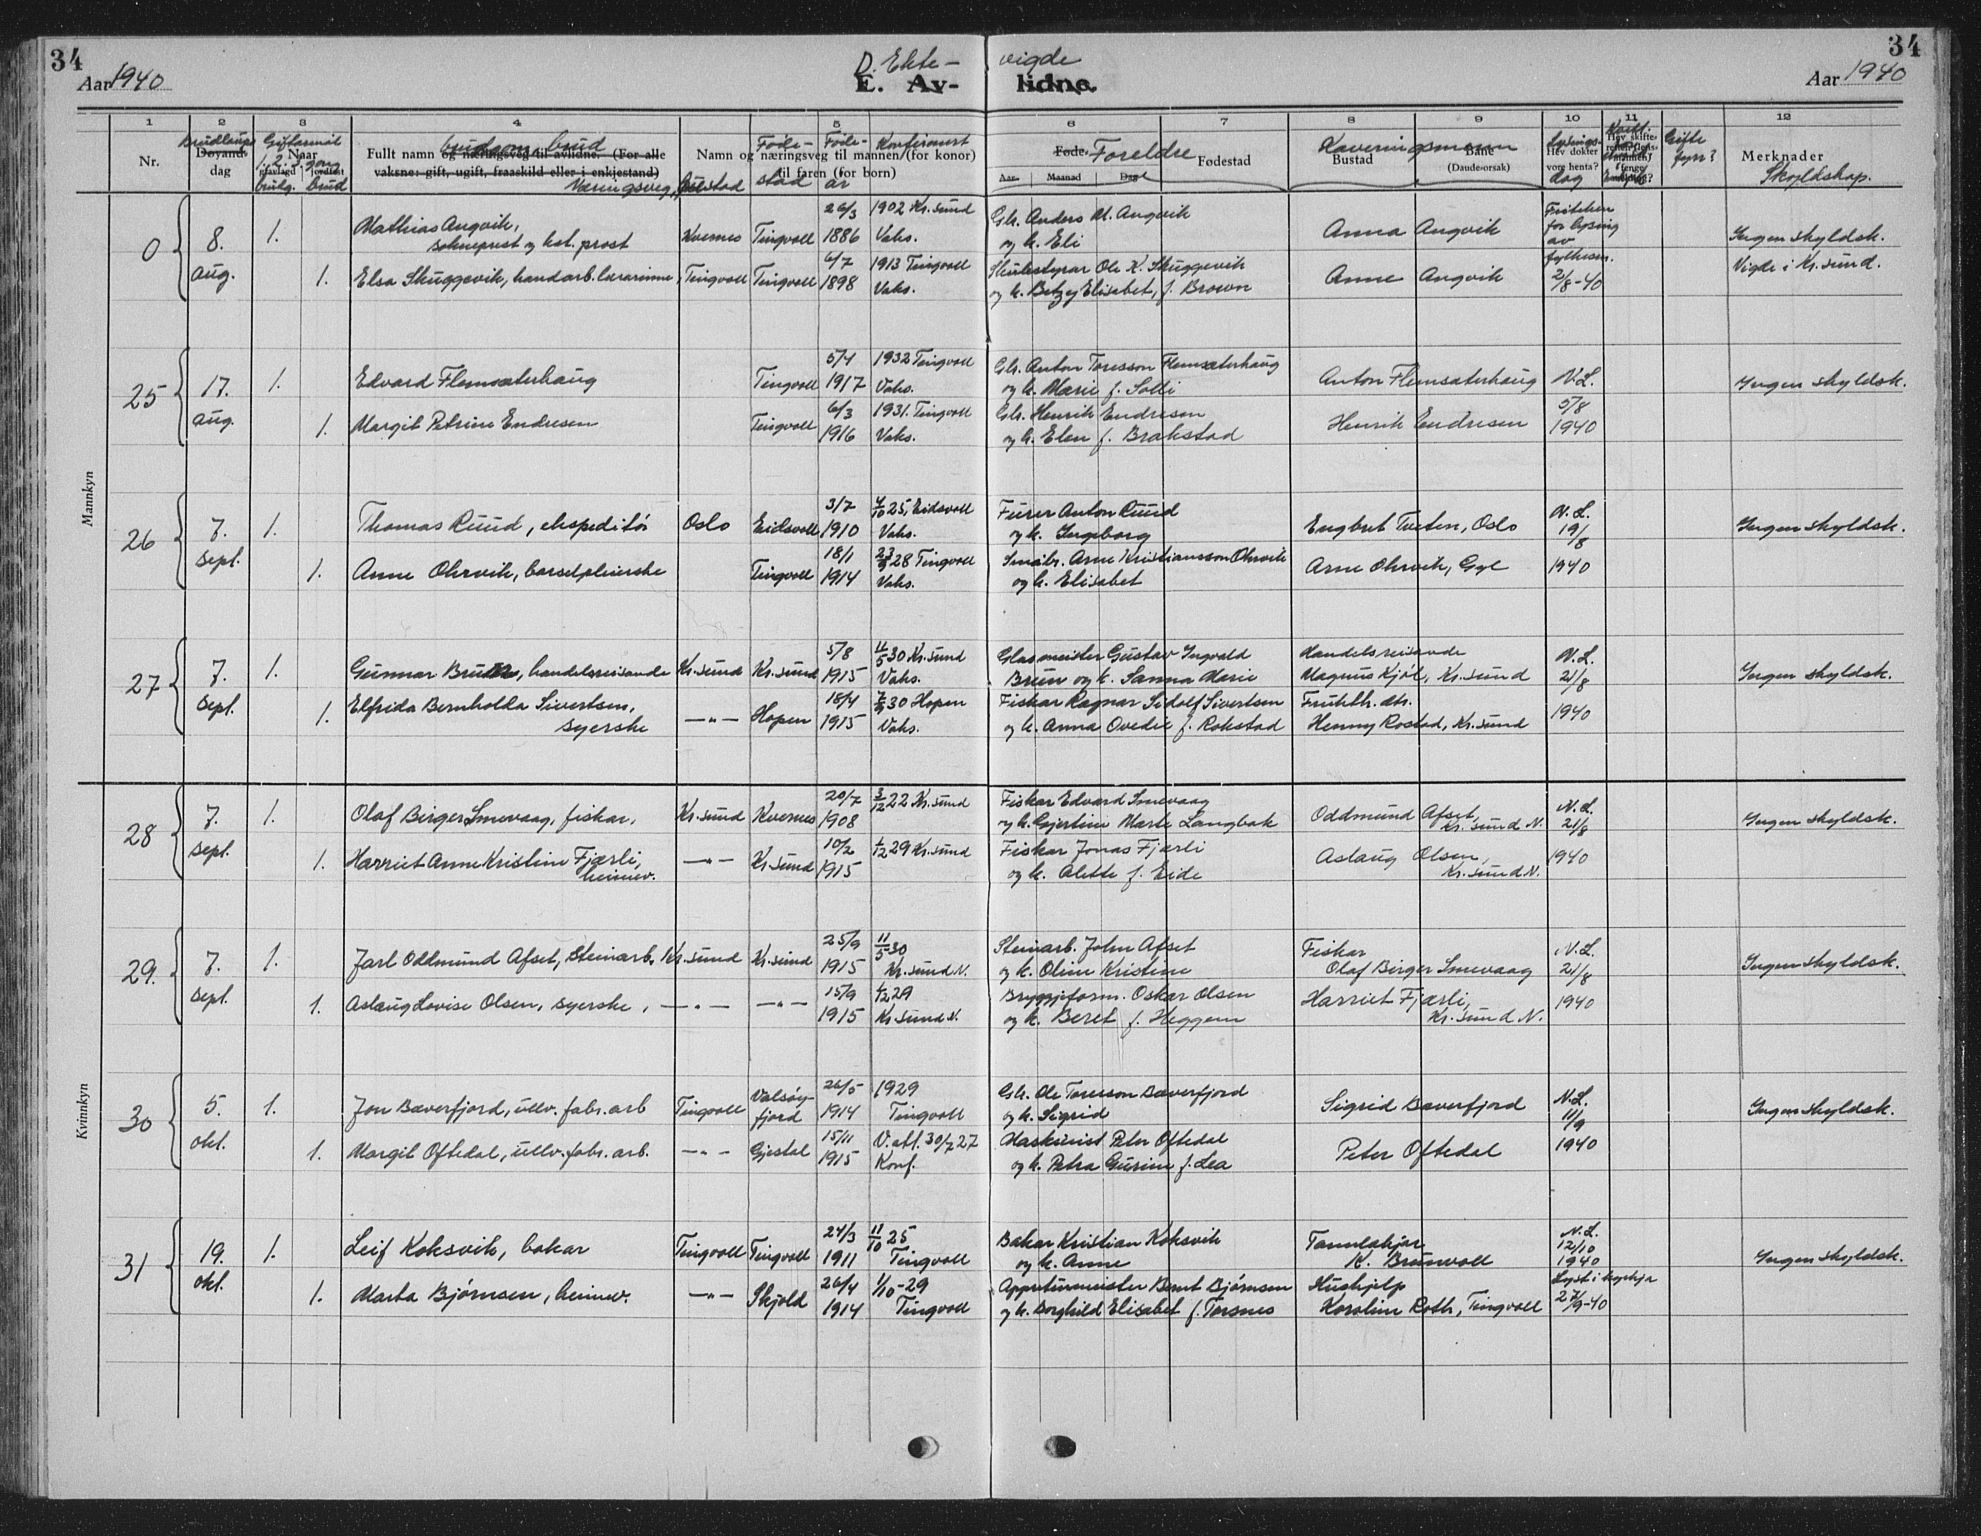 34
34
Aar 1940
D. Ekte- vigde
E. Av- lidne.
Aar 1940
1 2 3 4 5 6 7 8 9 10 11 12
Nr.
Brudlaups
Døyands-
dag
Giftarmål
Naar
1. 2. 3. gong
brudg. brud
brudgom brud
Fullt namn og næringsveg til avlidne. (For alle
vaksne: gift, ugift, fraaskild eller i enkjestand)
Næringsveg, Bustad
Føde-
stad
Føde-
år
Konfirmert
Namn og næringsveg til mannen (for konor)
til faren (for born)
Føde.
Aar. Maanad Dag
Foreldre
Fødestad
Kaveringsmenn
Bustad
Bane
(Daude-orsak)
Lysings-
Hev dokter
vore henta?
dag
Gifte
fyrr?
Merknader
Skyldskap.
Mannkyn
0
8.
aug.
1.
Mathias Angvik,
sokneprest og kst. prost
Kvernes
Tingvoll
26/3
1886
1902 Kr.sund
Vaks.
Gbr. Anders M. Angvik
og k. Eli
Anna Angvik
Fritaken
for lysing
av
fylkesm.
2/8-40
Ingen skyldsk.
Vigde i Kr.sund.
1.
Elsa Skuggevik, handarb.lærarinne,
Tingvoll
Tingvoll
6/7
1898
1913 Tingvoll
Vaks.
Skulestyrar Ole K. Skuggevik
og k. Betzy Elisabet, f. Brown
Anne Angvik
25
17.
aug.
1.
Edvard Flemsæterhaug
Tingvoll
5/4
1917
1932 Tingvoll
Vaks.
Gbr. Anton Toresson Flemsæterhaug
og k. Marie f. Solli
Anton Flemsæterhaug
N.L.
5/8
1940
Ingen skyldsk.
1.
Margit Petrine Endresen
Tingvoll
6/3
1916
1931. Tingvoll
Vaks.
Gbr. Henrik Endresen
og k. Elen f. Brakstad
Henrik Endresen
26
7.
sept.
1.
Thomas Ruud, ekspeditør
Oslo
Eidsvoll
3/7
1910
4/10 25, Eidsvoll
Vaks.
Furer Anton Ruud
og k. Ingeborg
Engbret Tveten, Oslo
N.L.
19/8
1940
Ingen skyldsk.
1.
Anne Ohrvik, barselpleierske
Tingvoll
18/1
1914
23/9 28 Tingvoll
Vaks.
Småbr. Arne Kristiansson Ohrvik
og k. Elisabet
Arne Ohrvik, Gyl
27
7.
sept.
1.
Gunnar Bruun, handelsreisande
Kr.sund
Kr.sund
5/8
1915
11/5 30 Kr.sund
Vaks.
Glasmeister Gustav Ingvald
Bruun og k. Sanna Marie
Handelsreisande
Magnus Kjøl, Kr.sund
N.L.
21/8
1940
Ingen skyldsk.
1.
Elfrida Bernholda Sivertsen,
syerske
—"—
Hopen
18/4
1915
7/9 30 Hopen
Vaks.
Fiskar Ragnar Sidolf Sivertsen
og k. Anna Ovedie f. Rokstad
Frukth. dtr.
Henny Rostad, Kr.sund
28
7.
sept.
1.
Olaf Birger Smevaag, fiskar,
Kr.sund
Kvernes
20/7
1908
3/12 22 Kr.sund
Fiskar Edvard Smevaag
og k. Gjertine Marte Langbak
Oddmund Afset,
Kr.sund N.
N.L.
21/8
1940
Ingen skyldsk.
1.
Harriet Anne Kristine Fjærli,
heimev.
—"—
Kr.sund
10/2
1915
1/12 29 Kr.sund
Fiskar Jonas Fjærli
og k. Alette f. Eide
Aslaug Olsen,
Kr.sund N.
Kvinnkyn
29.
7.
sept.
1.
Jarl Oddmund Afset, Steinarb.
Kr.sund
Kr.sund
25/9
1915
11/5 30
Kr.sund N.
Steinarb. John Afset
og k. Oline Kristine
Fiskar
Olaf Birger Smevaag
N.L.
21/8
1940
Ingen skyldsk.
1.
Aslaug Lovise Olsen, syerske,
—"—
—"—
15/9
1915
1/12 29
Kr.sund N.
Bryggjeform. Oskar Olsen
og k. Beret f. Heggem
Harriet Fjærli,
Kr.sund N.
30
5.
okt.
1.
Jon Bæverfjord, ullv.fabr.arb
Tingvoll
Valsøy-
fjord
26/5
1914
1929
Tingvoll
Gbr. Ole Toresson Bæverfjord
og k. Sigrid
Sigrid Bæverfjord
N.L.
11/9
1940
Ingen skyldsk.
1.
Margit Oftedal, ullv.fabr.arb.
—"—
Gjestal
15/11
1915
V. att. 30/7 27
Konf.
Maskinist Peter Oftedal
og k. Petra Gurine f. Lea
Peter Oftedal
31
19.
okt.
1.
Leif Koksvik, bakar
Tingvoll
Tingvoll
24/3
1911
11/10 25
Tingvoll
Bakar Kristian Koksvik
og k. Anne
Tannlækjar
K. Brunvoll
N.L.
12/10
1940
Lyst i kyrkja
27/9-40
Ingen skyldsk.
1.
Marta Bjørnsen, heimev.
—"—
Skjold
26/4
1914
1/10-29
Tingvoll
Appreturmeister Bernt Bjørnsen
og k. Borghild Elisabet f. Torsnes
Hushjelp
Karoline Roth, Tingvoll